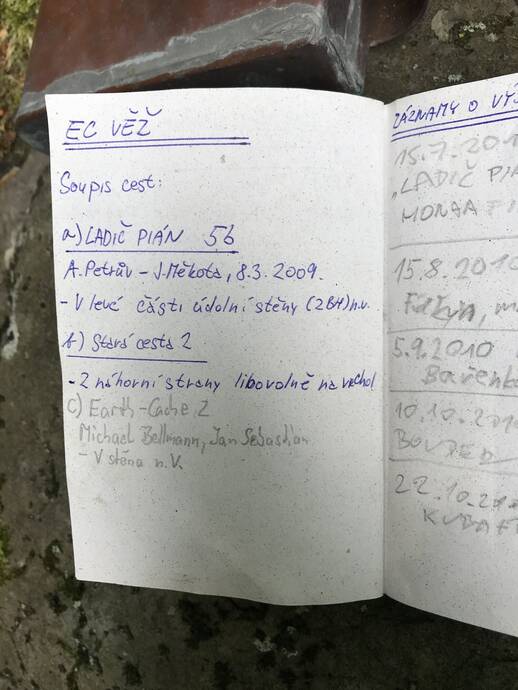 EC VĚŽ
Soupis cest:
a) LADIČ PIÁN 5b
A. Petrův - J. Měkota, 8.3.2009.
- V levé části údolní stěny (2BH) n.v.
b) Stará cesta 2
- Z náhorní strany libovolně na vrchol
c) Earth-Cache, 2
Michael Bellmann, Jan Sebastian
- V stěna n.V.
ZÁZNAMY O VÝS
15.7.201
"LADIČ PIÁ
15.8.2010
5.9.2010
10.10.201
22.10.201
KUBA